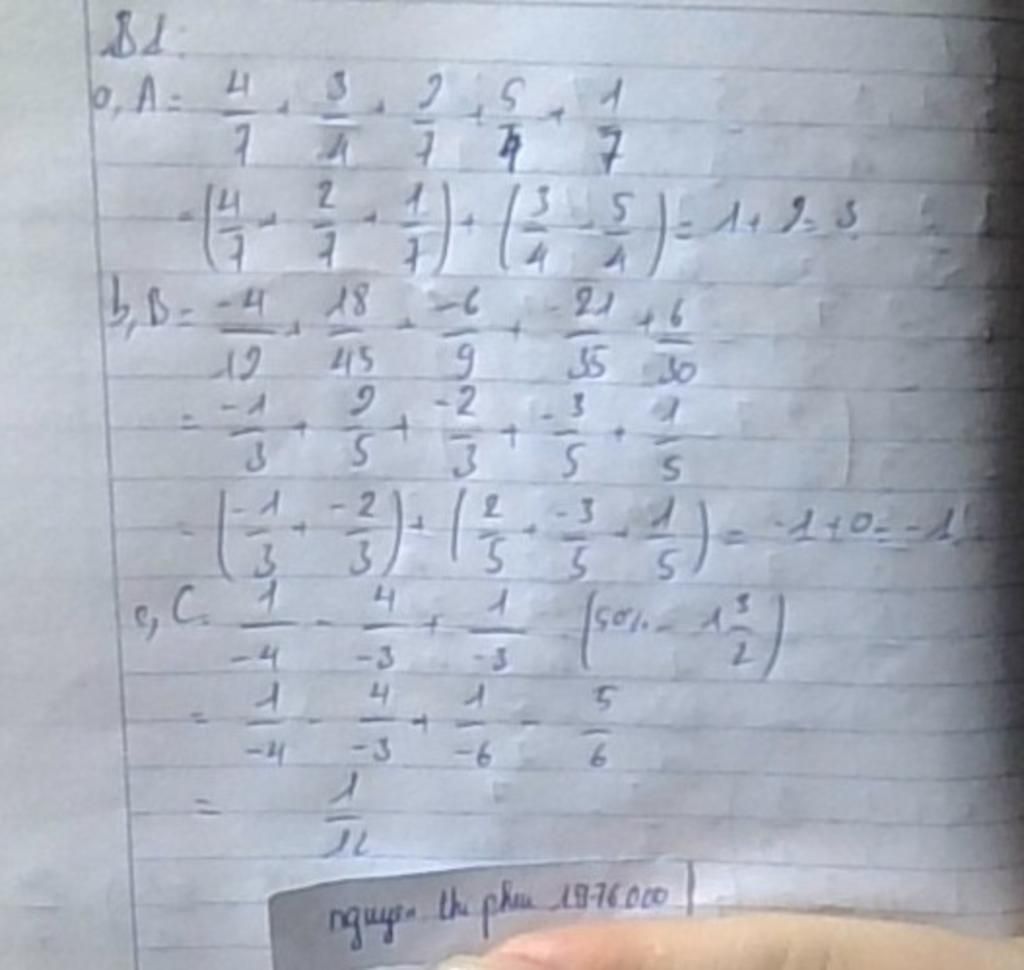 B1:
a, A = 4/7 + 3/4 + 2/7 + 5/4 + 1/7
= (4/7 + 2/7 + 1/7) + (3/4 + 5/4) = 1 + 2 = 3
b, B = -4/12 + 18/45 + -6/9 + -21/35 + 6/30
= -1/3 + 2/5 + -2/3 + -3/5 + 1/5
= (-1/3 + -2/3) + (2/5 + -3/5 + 1/5) = -1 + 0 = -1
c, C = 1/-4 - 4/-3 + 1/-3 (50% - 1 3/2)
= 1/-4 - 4/-3 + 1/-6 - 5/6
= 1/12
nguyen thi 1976000